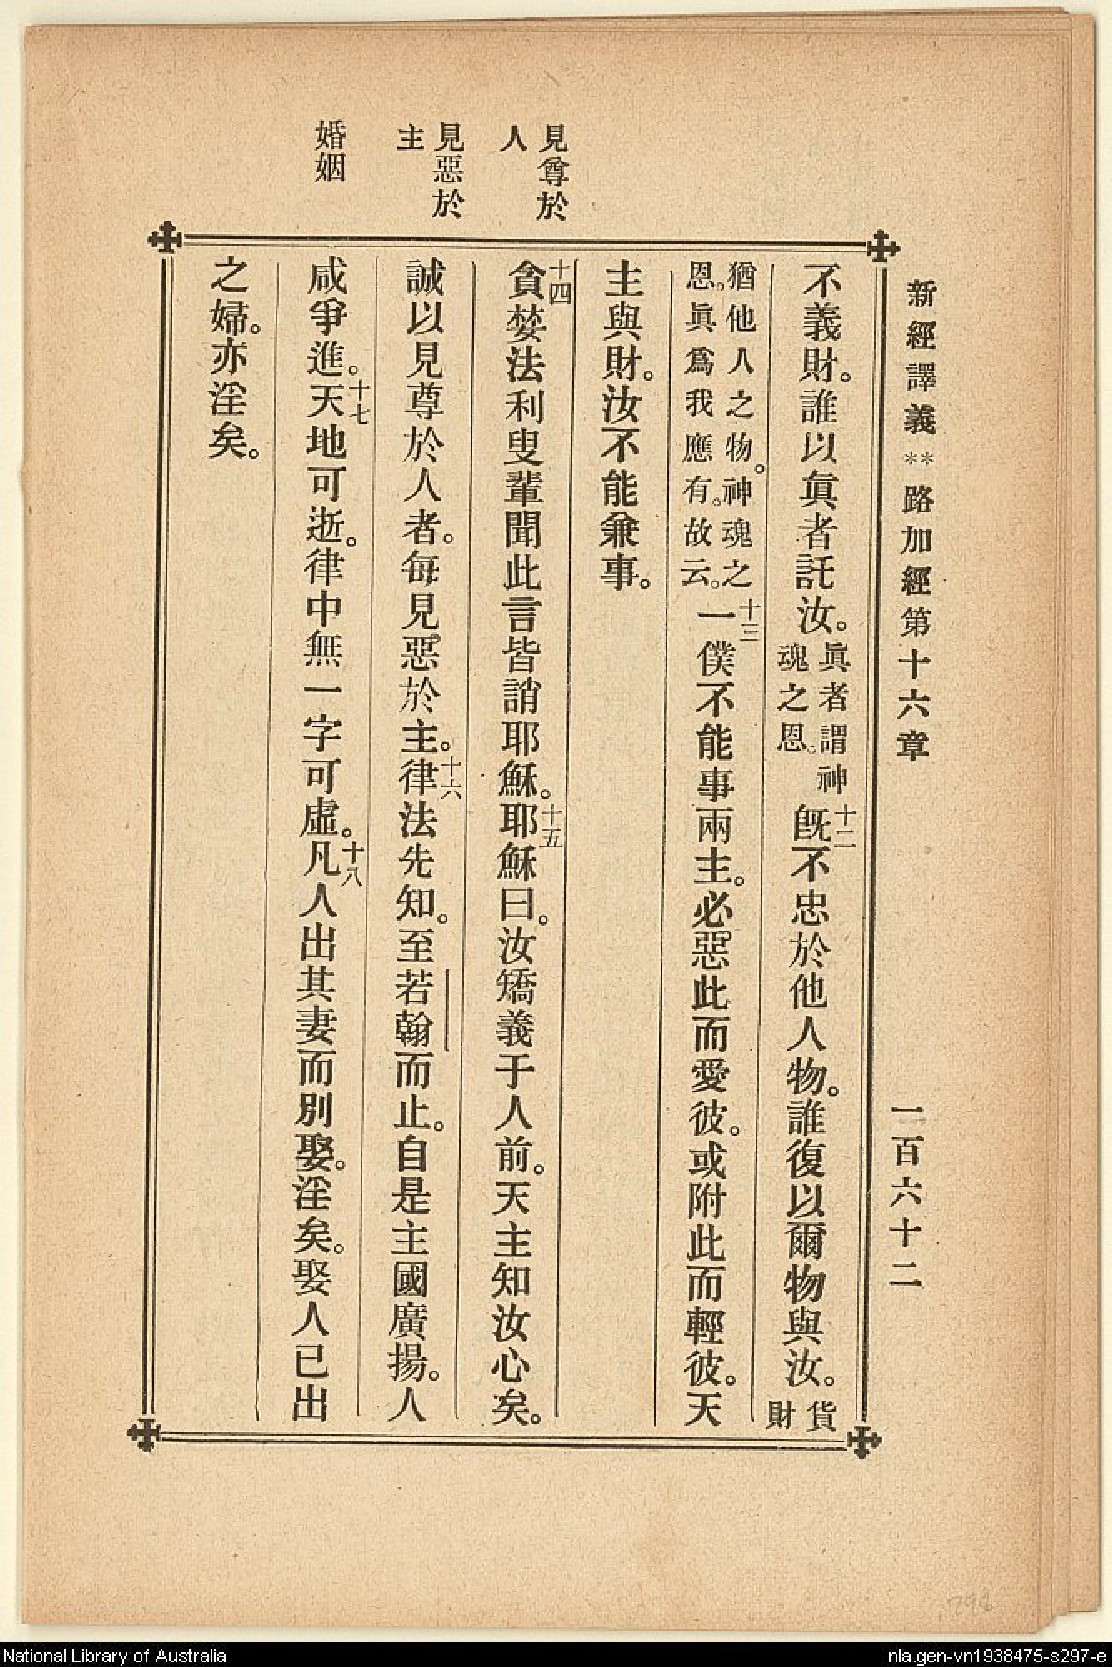 新經譯義**路加經第十六章 一百六十二
見尊於
人
見惡於
主
婚姻
不義財。誰以眞者託汝。眞者謂神魂之恩。十二旣不忠於他人物。誰復以爾物與汝。貨財
猶他人之物。神魂之恩。眞爲我應有。故云。十三一僕不能事兩主。必惡此而愛彼。或附此而輕彼。天
主與財。汝不能兼事。
十四貪婪法利叟輩聞此言皆誚耶穌。十五耶穌曰。汝矯義于人前。天主知汝心矣。
誠以見尊於人者。每見惡於主。十六律法先知。至若翰而止。自是主國廣揚。人
咸爭進。十七天地可逝。律中無一字可虛。十八凡人出其妻而別娶。淫矣。娶人已出
之婦。亦淫矣。
National Library of Australia
nla.gen-vn1938475-s297-e